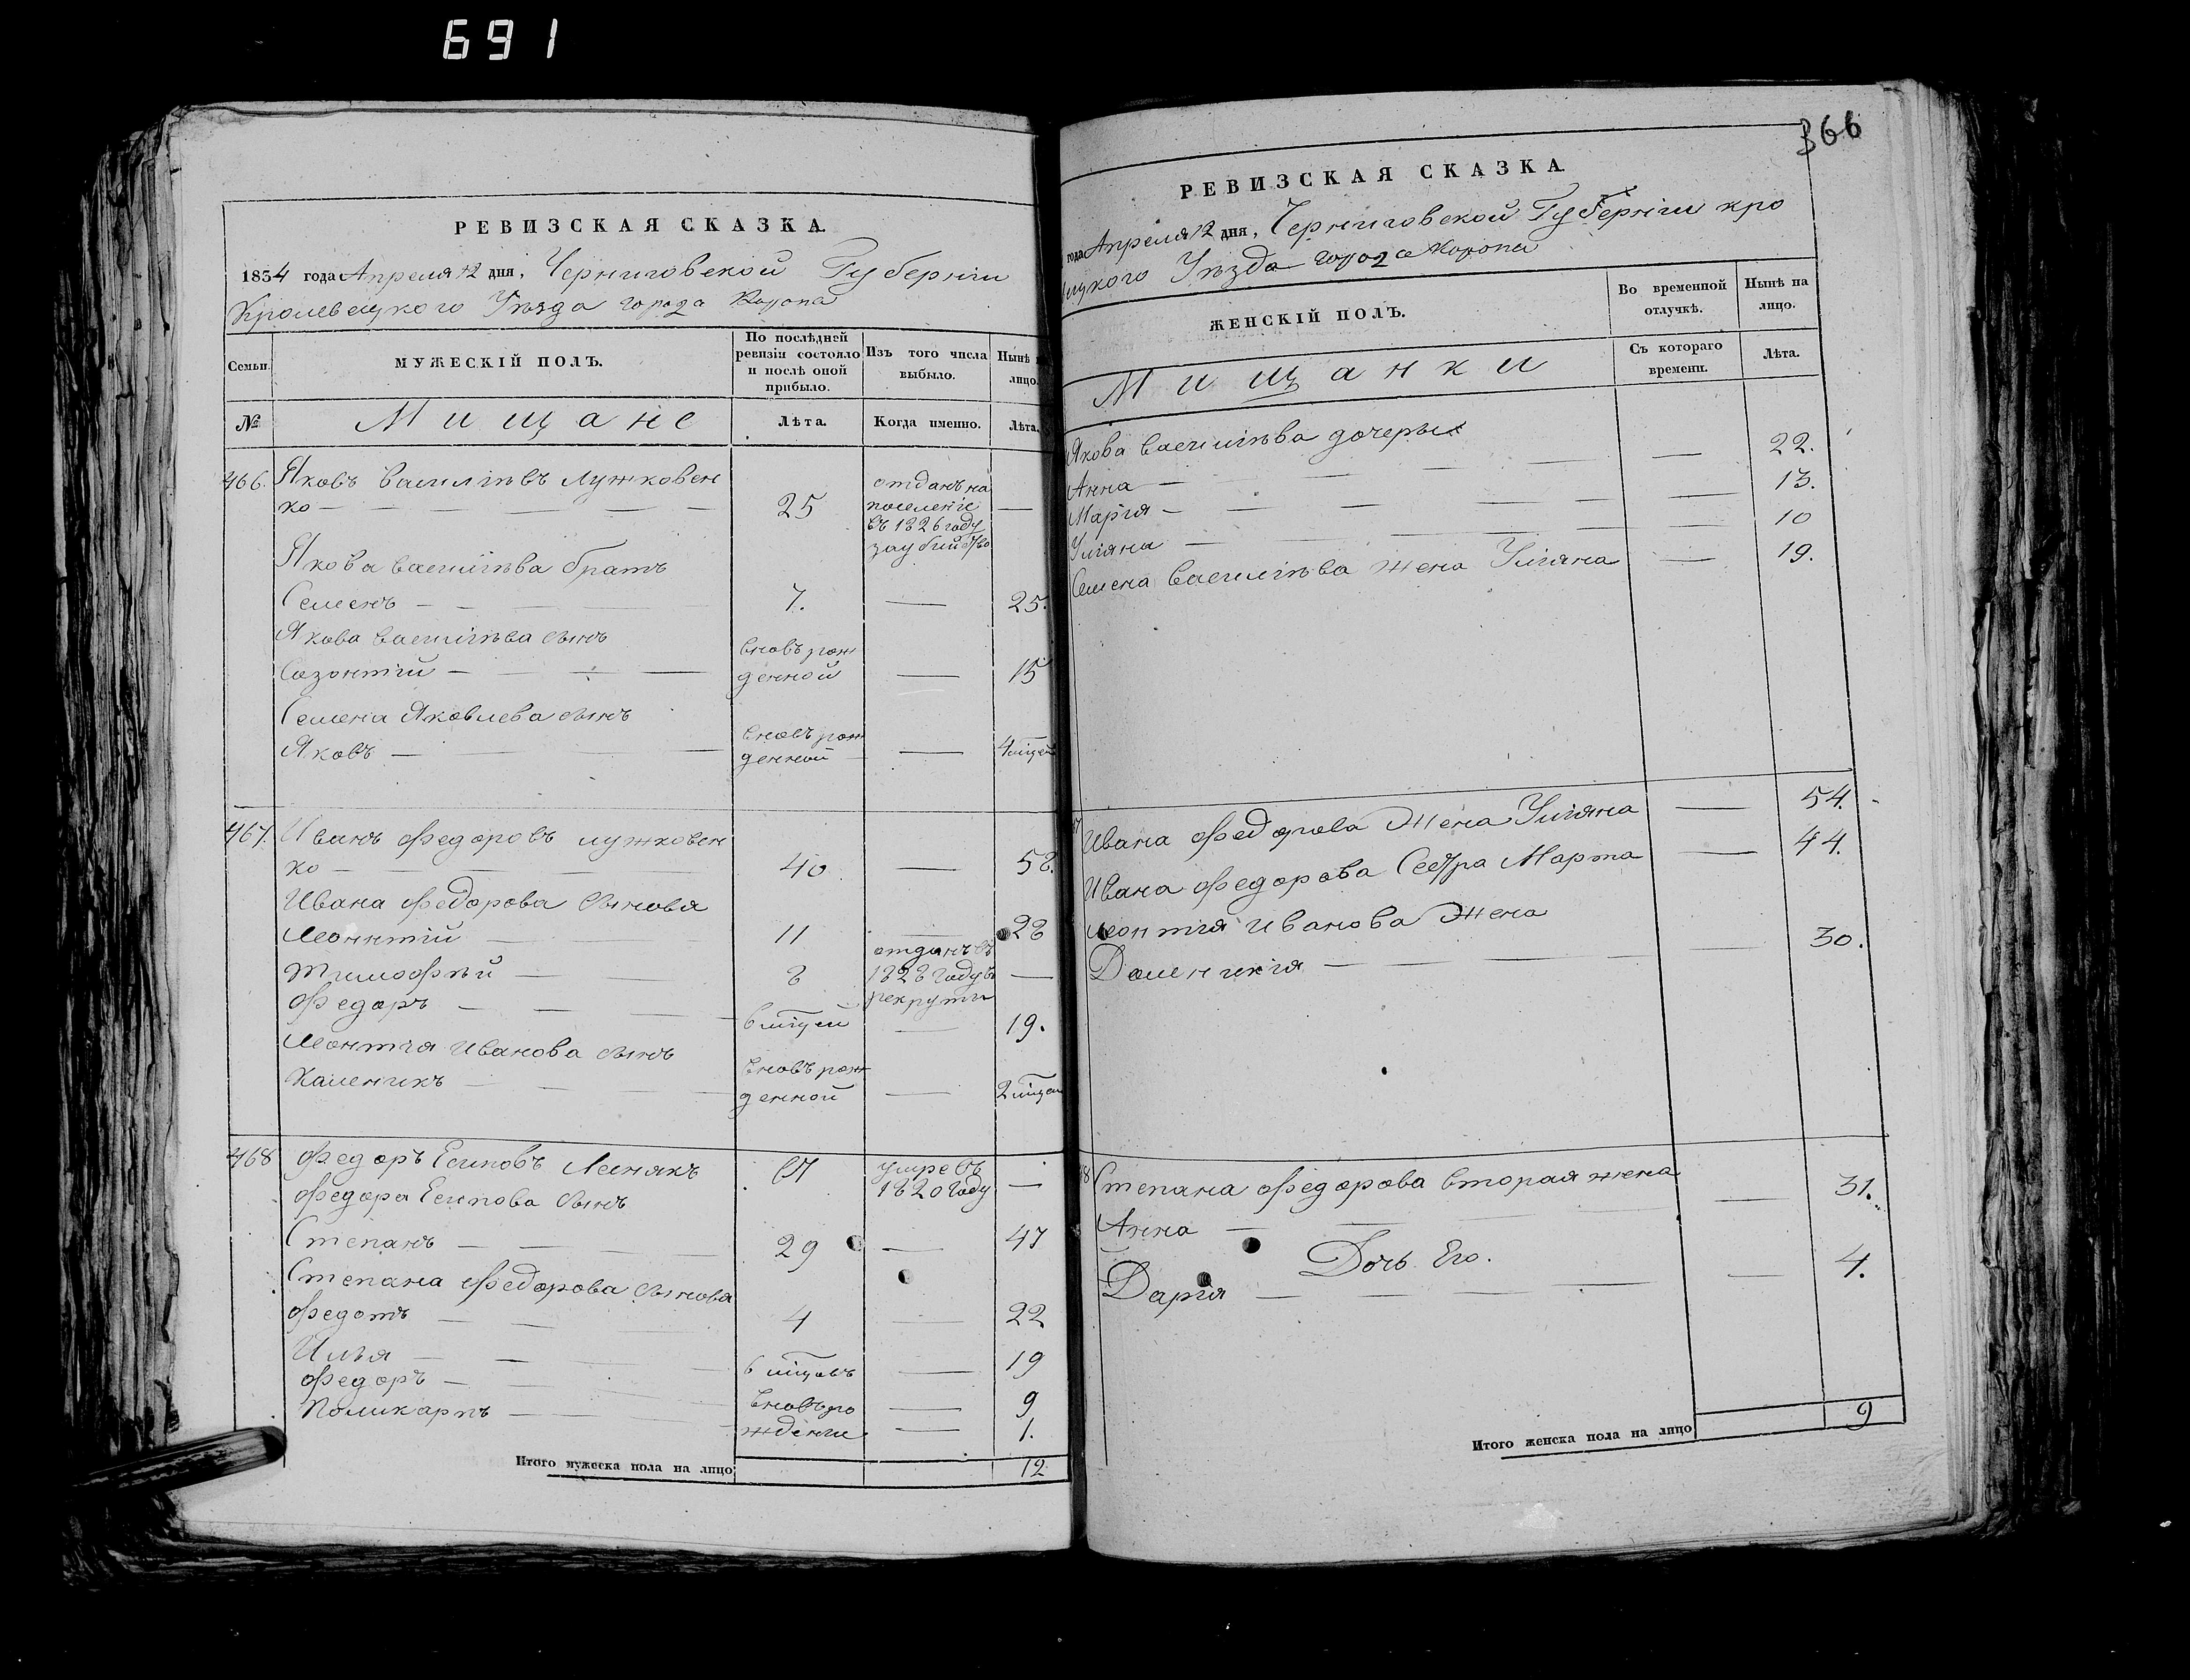 691
РЕВИЗСКАЯ СКАЗКА
1834 года Апреля 12 дня, Черниговской Губерніи
Кролевецкого Уѣзда города Коропа
Семьи.
МУЖЕСКІЙ ПОЛЪ.
По послѣдней ревизіи состояло и послѣ оной прибыло.
Изъ того числа выбыло.
Нынѣ лицо.
№
Мищане
Лѣта.
Когда именно.
Лѣта.
466. Яковъ Васильѣвъ Лужковен
ко — 25 отданъ на поселеніе въ 1826 году за убийство —
Якова Васильѣва братъ
Семенъ — 7. — 25.
Якова Васильѣва сынъ
Созонтій — вновь рожденной — 15
Семена Яковлева сынъ
Яковъ — вновь рожденной — 4 мцей
467. Иванъ Федоровъ лужковен
ко — 40 — 58.
Ивана Федорова сыновя
Леонтій — 11 — 28
Тимофѣй — 8 отданъ въ 1828 году въ рекруты —
Федоръ — 6 мцей — 19.
Леонтія Иванова сынъ
Каленикъ — вновь рожденной — 2 мцей
468 Федоръ Есиповъ Лесняkъ 67 умре въ 1820 году —
Федора Есипова сынъ
Степанъ — 29 — 47
Степана Федорова сыновя
Федотъ — 4 — 22
Илья — 6 мцовъ — 19
Федоръ — вновь ро — 9
Поликарпъ — ждение — 1.
Итого мужеска пола на лицо 12
366
РЕВИЗСКАЯ СКАЗКА
года Апреля 12 дня, Черниговской Губерніи кро
ецкого Уѣзда города Коропа
ЖЕНСКІЙ ПОЛЪ.
Во временной отлучкѣ.
Нынѣ на лицо.
Мищанки
Съ котораго времени.
Лѣта.
Якова Васильѣва дочеры
Анна — 22.
Марія — 13.
Уліяна — 10
Семена Васильѣва жена Уліяна — 19.
Ивана Федорова Жена Уліяна — 54.
Ивана Федорова Сестра Марта — 44.
Леонтія Иванова Жена
Доменикія — 30.
Степана Федорова вторая жена
Анна — 31.
Дочь Его.
Дарія — 4.
Итого женска пола на лицо 9